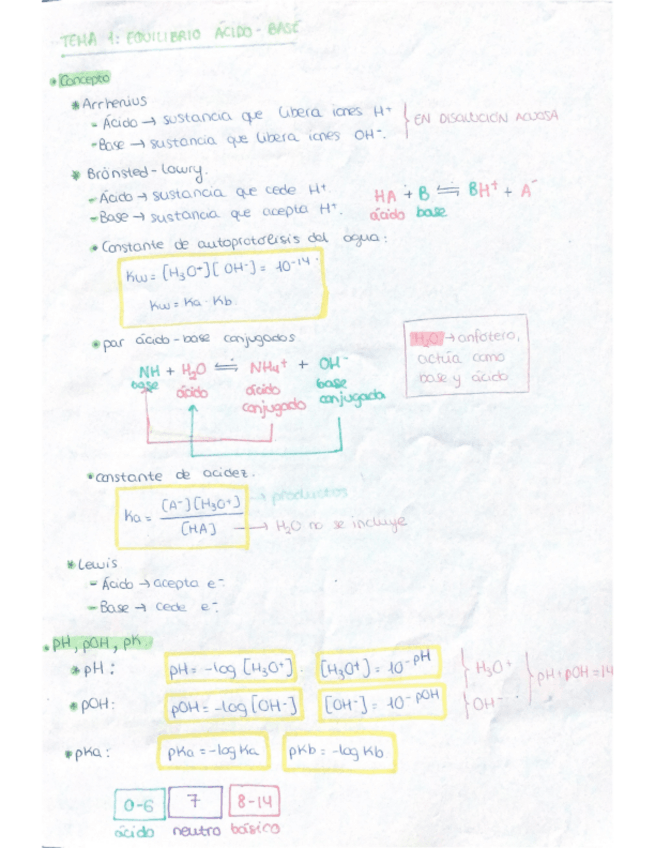 TEMA 1: EQUILIBRIO ÁCIDO-BASE
* Concepto
* Arrhenius
- Ácido → sustancia que libera iones H⁺
- Base → sustancia que libera iones OH⁻.
} EN DISOLUCIÓN ACUOSA
* Brönsted-Lowry.
- Ácido → sustancia que cede H⁺.
- Base → sustancia que acepta H⁺.
HA + B ⇌ BH⁺ + A⁻
ácido base
* Constante de autoprotólisis del agua:
Kw = [H₃O⁺][OH⁻] = 10⁻¹⁴.
Kw = Ka · Kb.
* par ácido-base conjugados
H₂O → anfótero,
actúa como
base y ácido
NH + H₂O ⇌ NH₄⁺ + OH⁻
base ácido ácido conjugado base conjugada
* constante de acidez.
Ka = [A⁻][H₃O⁺] → productos
[HA] → H₂O no se incluye
* Lewis
- Ácido → acepta e⁻.
- Base → cede e⁻.
* pH, pOH, pK.
* pH: pH = -log [H₃O⁺]. [H₃O⁺] = 10⁻ᵖᴴ } H₃O⁺ } pH + pOH = 14
* pOH: pOH = -log [OH⁻] [OH⁻] = 10⁻ᵖᴼᴴ } OH⁻
* pKa: pKa = -log Ka pKb = -log Kb
0-6 7 8-14
ácido neutro básico